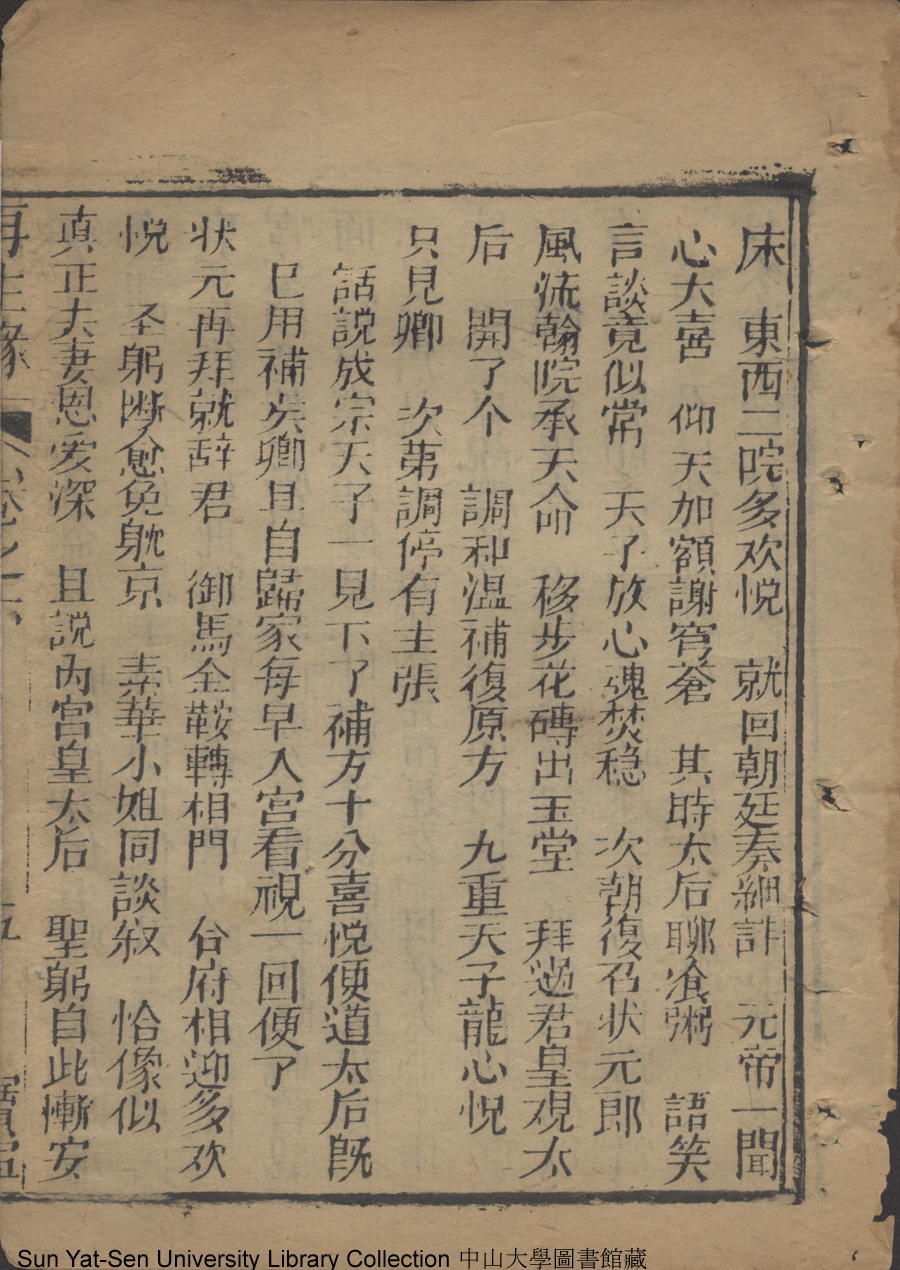 床　東西二院多欢悦　就回朝廷奏細詳　元帝一聞
心大喜　仰天加額謝穹蒼　其時太后聊飡粥　語笑
言談竟似常　天子放心魂梦稳　次朝復召状元郎
風流翰院承天命　移步花磚出玉堂　拜過君皇观太
后　開了个　調和温補復原方　九重天子龍心悦
只見卿　次第調停有主張
話說成宗天子一見下了補方十分喜悦便道太后既
已用補矣卿且自歸家每早入宮看視一回便了
状元再拜就辞君　御馬金鞍轉相門　合府相迎多欢
悦　圣躬断愈免躭京　素華小姐同談叙　恰像似
真正夫妻恩爱深　且説內宮皇太后　聖躬自此慚安
再生緣　卷之十六　五
Sun Yat-Sen University Library Collection 中山大學圖書館藏